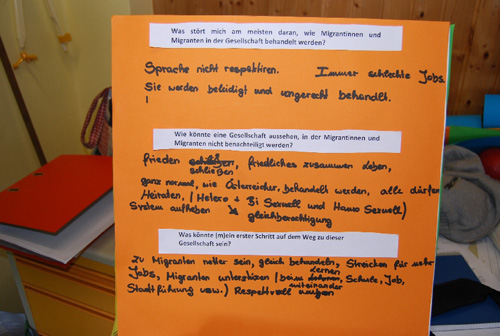 Was stört mich am meisten daran, wie Migrantinnen und
Migranten in der Gesellschaft behandelt werden?
Sprache nicht respektiren. Immer schlechte Jobs.
Sie werden beleidigt und ungerecht behandelt.
Wie könnte eine Gesellschaft aussehen, in der Migrantinnen und
Migranten nicht benachteiligt werden?
frieden schließen, friedliches zusammen leben,
ganz normal, wie Österreicher, behandelt werden, alle dürfen
Heiraten, (Hetero + Bi Sexuell und Homo Sexuell)
System aufheben ↘ gleichberechtigung
Was könnte (m)ein erster Schritt auf dem Weg zu dieser
Gesellschaft sein?
Zu Migranten netter sein, gleich behandeln, Streicken für mehr
Jobs, Migranten unterstüzen (beim Lernen, Schule, Job,
Stadtführung usw.) Respektvoll miteinander